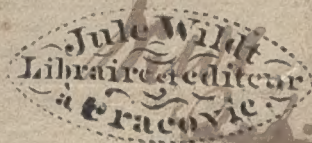 Jule Wildt
Libraire et editeur
à Cracovie